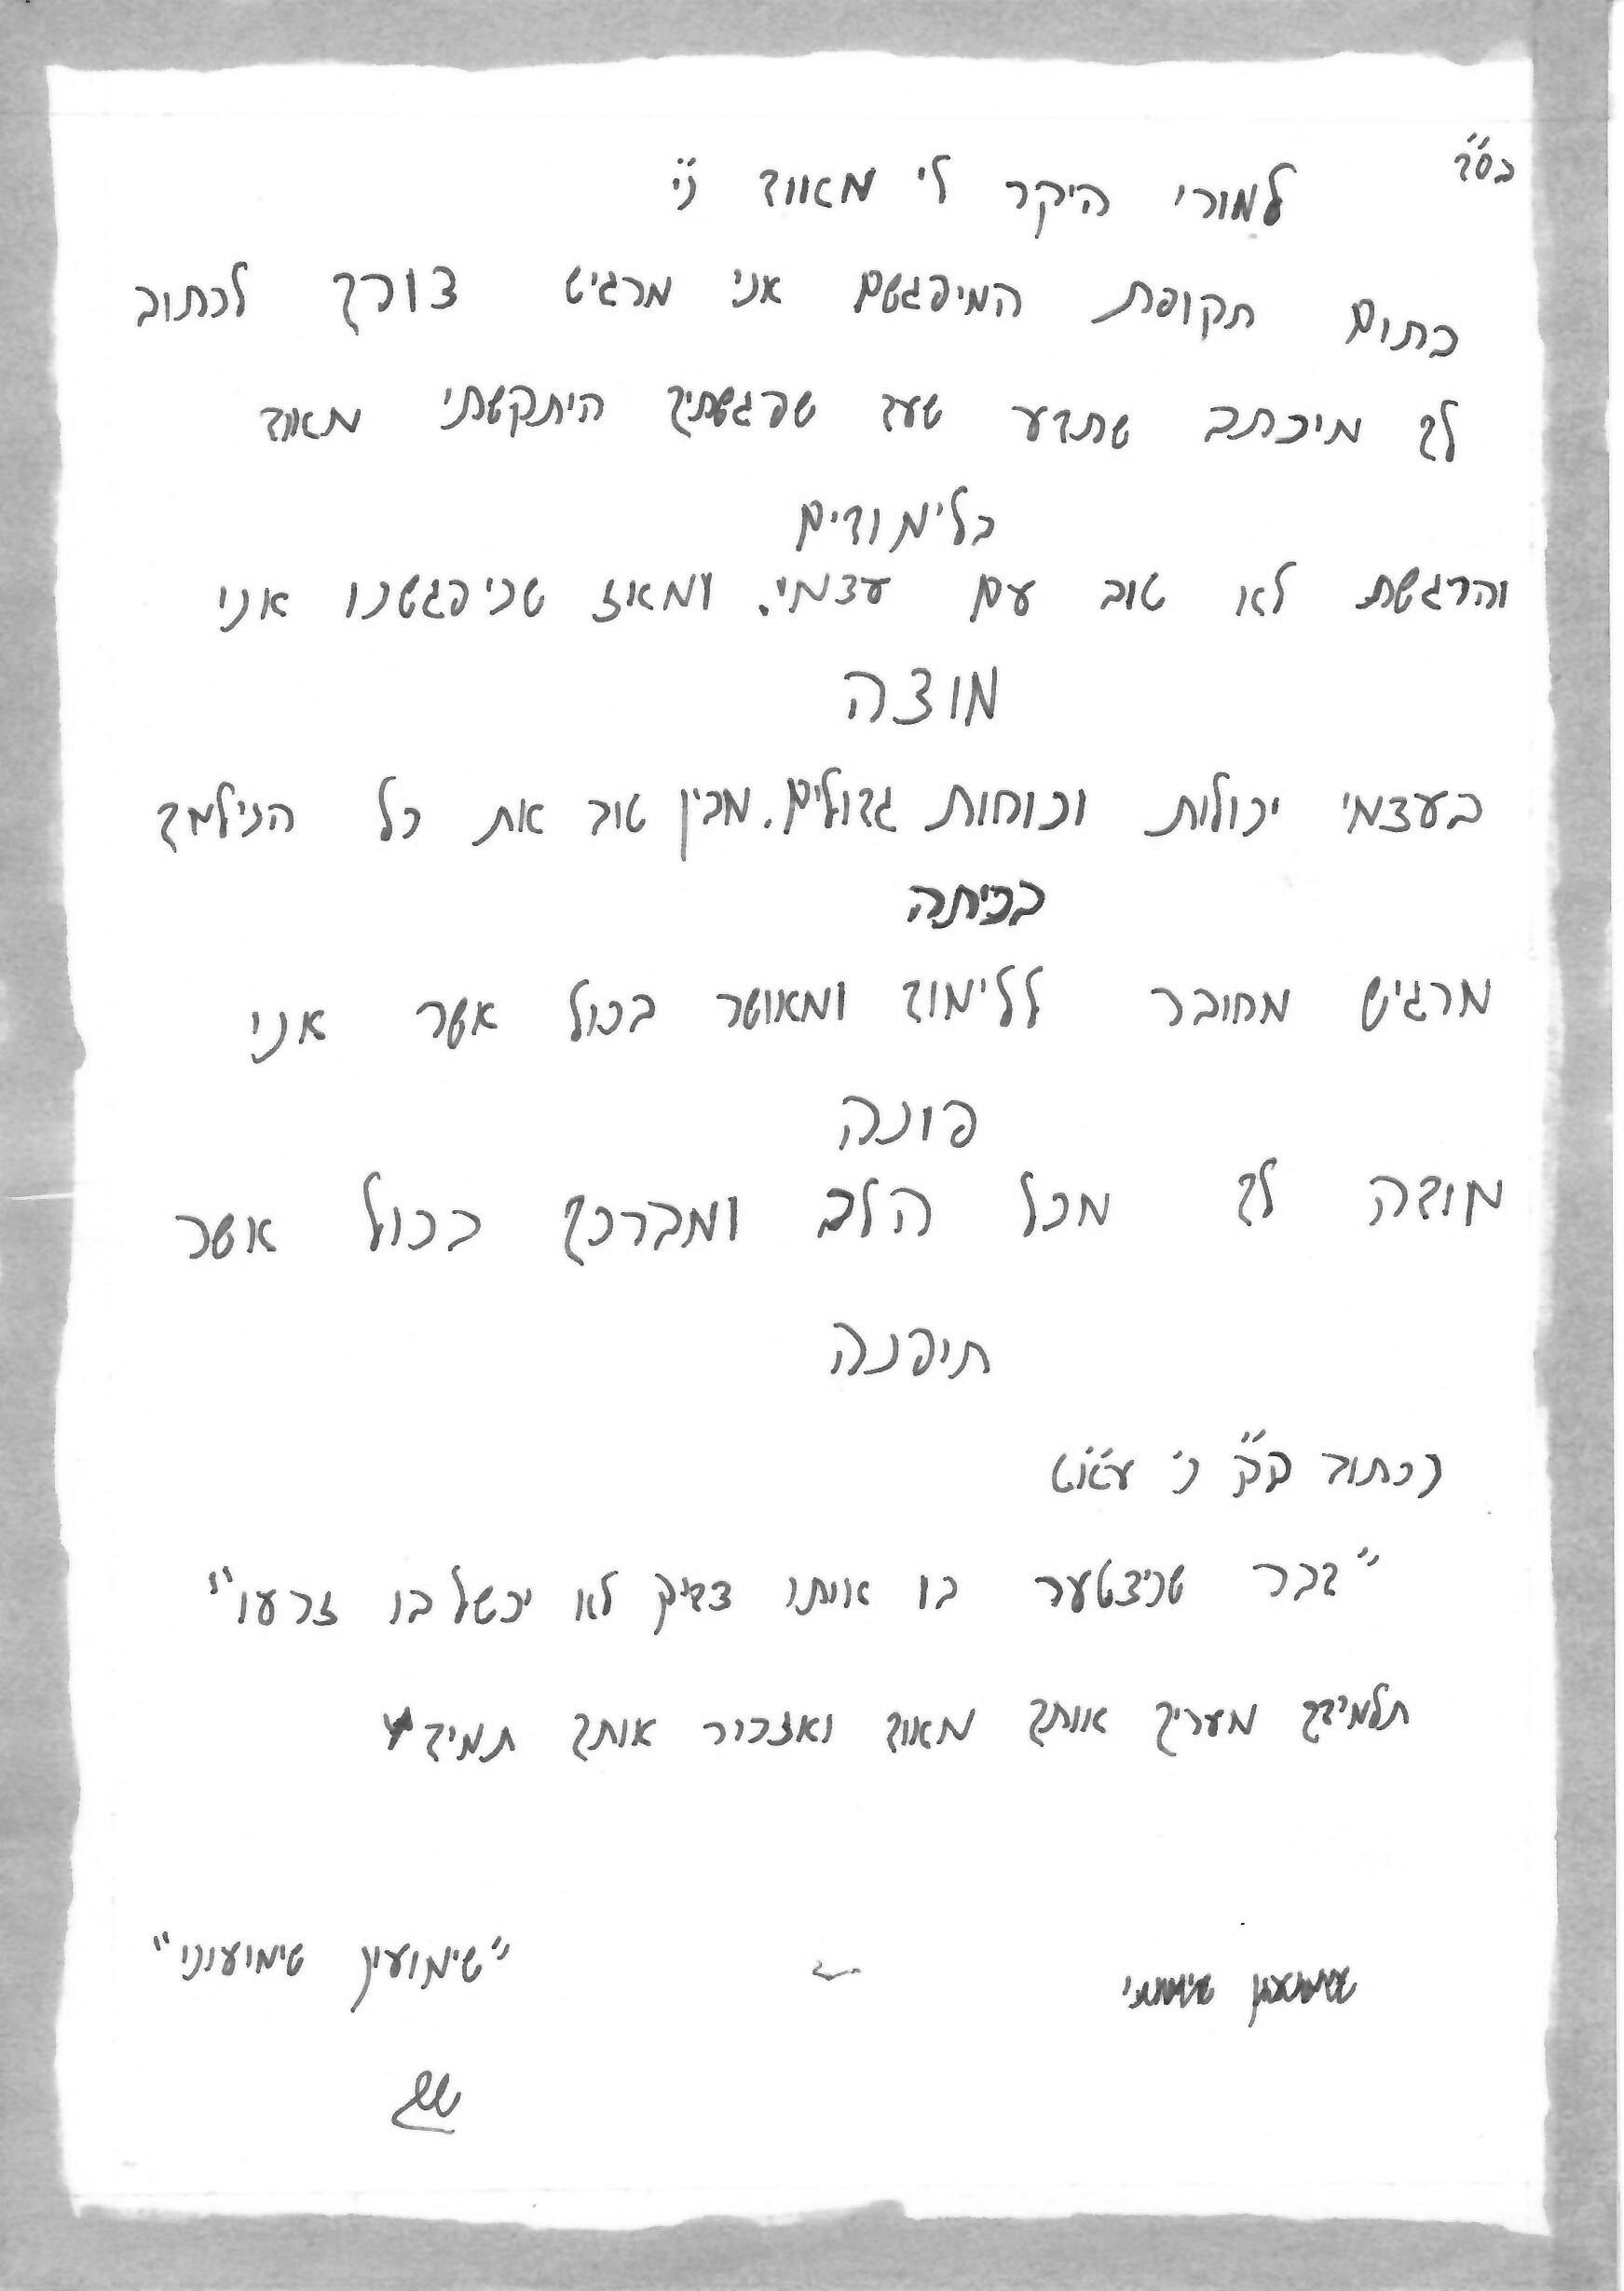 בס"ד
למורי היקר לי מאווד נ"י
בתום תקופת המיפגשם אני מרגיש צורך לכתוב
לך מיכתב שתדע שעד שפגשתיך היתקשתי מאווד
בלימודים
והרגשת לא טוב עם עצמי. ומאז שניפגשנו אני
מוצה
בעצמי יכולות וכוחות גדולים. מבין טוב את כל הנילמד
בכיתה
מרגיש מחובר ללימוד ומאושר בכול אשר אני
פונה
מודה לך מכל הלב ומברכך בכול אשר
תיפנה
(כתוב
"דבר שניצטער בו אותו צדיק לא יכשל בו זרעו"
תלמידך מעריך אותך מאוד ואזכור אותך תמיד
"שימעון שימעוני"